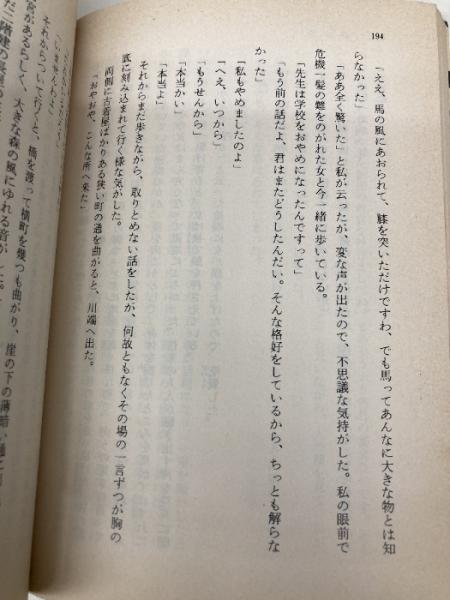 194
「ええ、馬の風にあおられて、膝を突いただけですわ、でも馬ってあんなに大きな物とは知
らなかった」
「ああ全く驚いた」と私が云ったが、変な声が出たので、不思議な気持がした。私の眼前で
危機一髪の難をのがれた女と今一緒に歩いている。
「先生は学校をおやめになったんですって」
「もう前の話だよ、君はまたどうしたんだい。そんな格好をしているから、ちっとも解らな
かった」
「私もやめましたのよ」
「へえ、いつから」
「もうせんから」
「本当かい」
「本当よ」
それからまだ歩きながら、取りとめない話をしたが、何故ともなくその場の一言ずつが胸の
底に刻み込まれて行く様な気がした。
両側に古着屋ばかりある狭い町の通を曲がると、川端へ出た。
「おやおや、こんな所へ来た」
それからって行くと、橋を渡って横町を幾つも曲がり、崖の下の薄暗い
宮があるらしく、大きな森の風にゆれる音が